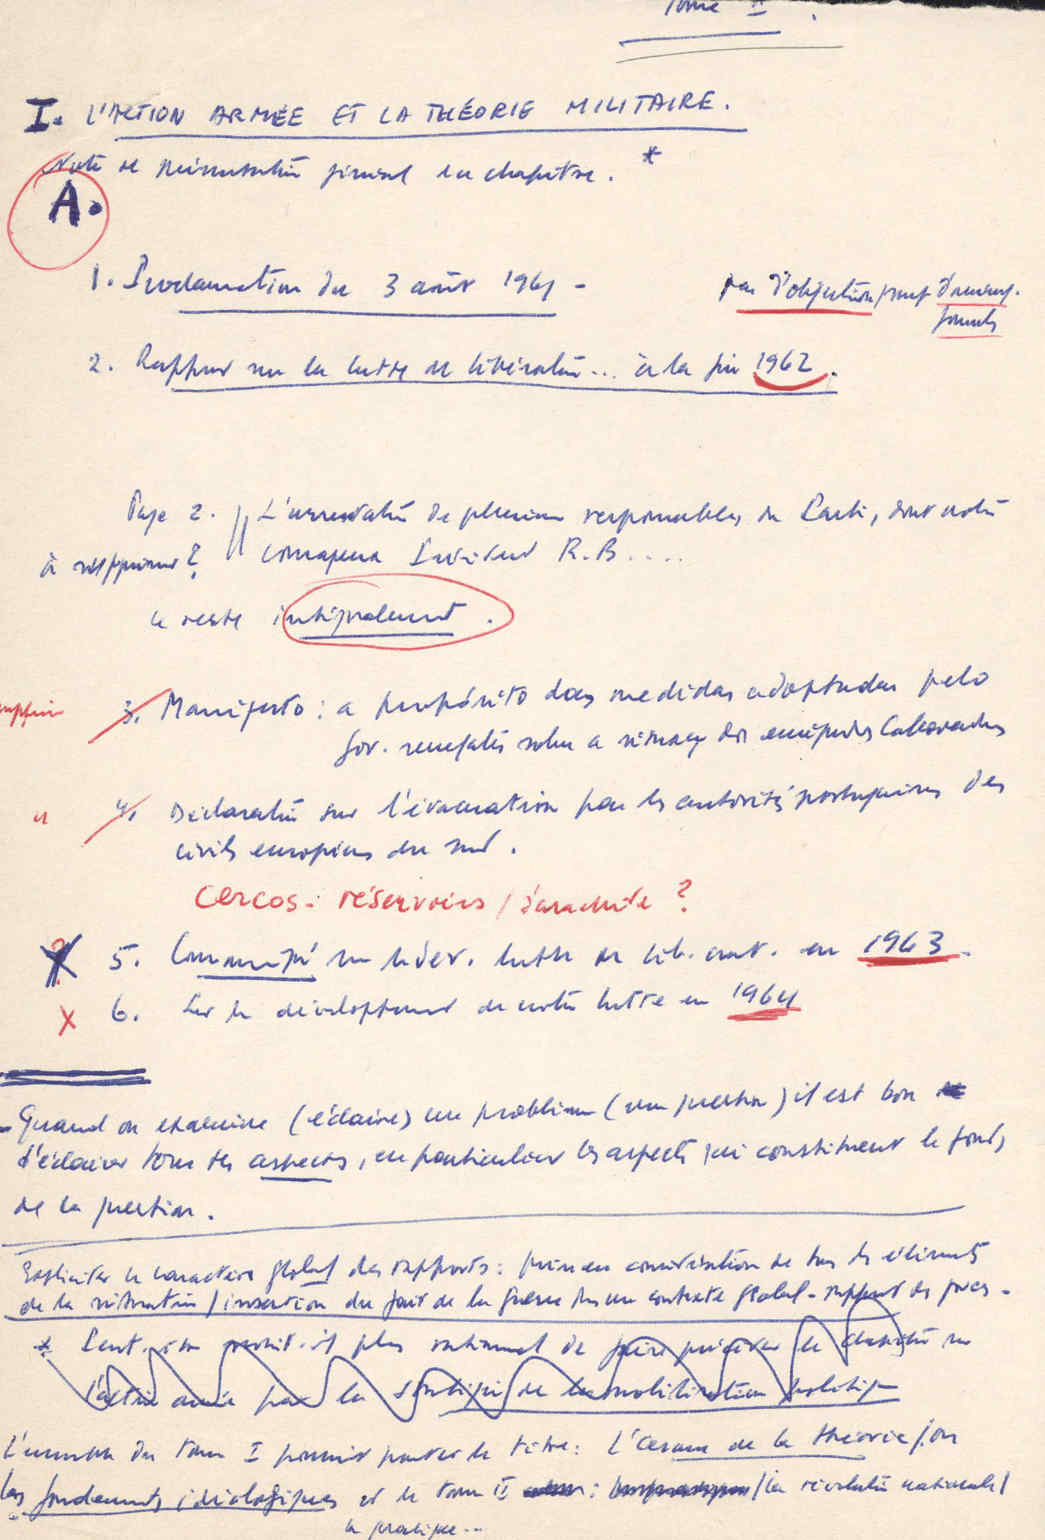 Tome II.
I. L'ACTION ARMÉE ET LA THÉORIE MILITAIRE.
Note de général du chapitre. *
A.
1. Proclamation du 3 août 1961 -
pas d'objection
2. Rapport sur la lutte de libération... à la fin 1962.
Page 2. L'arrestation de plusieurs responsables du Parti, dont notre
à supprimer? camarade R.B....
le reste intégralement.
3. Manifesto: a propósito das medidas adoptadas pelo
gov.
4. Déclaration sur l'évacuation par les autorités portugaises des
civils européens du sud.
cercos: réservoirs / ?
5. Communiqué lutte de lib. nat. en 1963.
X 6. Sur le développement de notre lutte en 1964
- Quand on examine (éclaire) un problème (une question) il est bon
d'éclairer tous ses aspects, en particulier les aspects qui constituent le fond
de la question.
Expliciter le caractère global des rapports: prise en considération de tous les éléments
de la situation / insertion du fait de la guerre dans un contexte global - rapport des forces -
* Peut-être serait-il plus rationnel de faire précéder le chapitre sur
l'action armée par la de la mobilisation politique
L'ensemble du tome I pourrait porter le titre: L'arme de la théorie / ou
les fondements idéologiques et le tome II : / la révolution nationale /
la pratique...